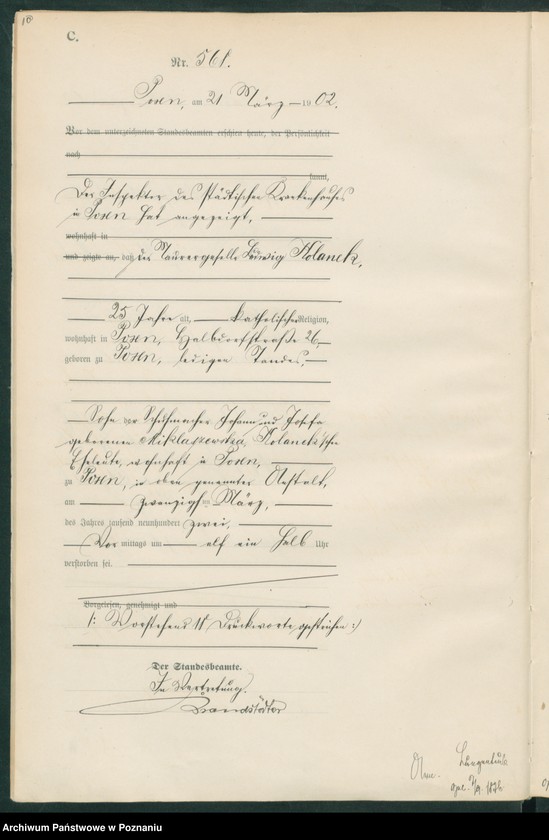 18
C.
Nr. 561.
Posen, am 21 März 1902.
Vor dem unterzeichneten Standesbeamten erschien heute, der Persönlichkeit
nach
kannt,
Der Inspektor des städtischen Krankenhauses
in Posen hat angezeigt,
wohnhaft in
und zeigte an, daß der Maurergeselle Ludwig Kolanek,
25 Jahre alt, katholischer Religion,
wohnhaft in Posen, Halbdorfstraße 26,
geboren zu Posen, ledigen Standes,
Sohn der Schuhmacher Johann und Josefa
geborenen Miklaszewska, Kolanek'schen
Eheleute, wohnhaft in Posen,
zu Posen, in oben genannter Anstalt,
am zwanzigsten März,
des Jahres tausend neunhundert zwei,
Vor mittags um elf ein halb Uhr
verstorben sei.
Vorgelesen, genehmigt und
/: Vorstehend Druckworte gestrichen :/
Der Standesbeamte.
In Vertretung.
Brandstädter
Archiwum Państwowe w Poznaniu